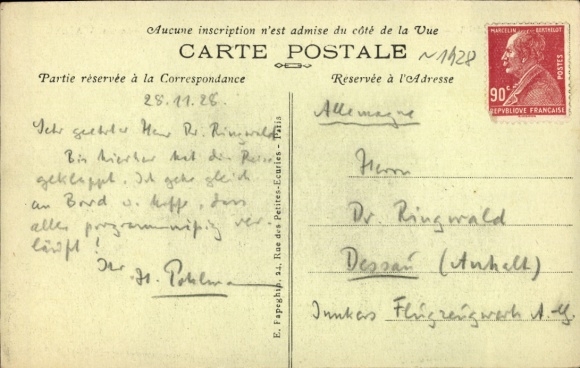 Aucune inscription n'est admise du côté de la Vue
CARTE POSTALE
~1928
Partie réservée à la Correspondance
Réservée à l'Adresse
MARCELIN BERTHELOT
POSTES
90c
REPVBLIQVE FRANÇAISE
28.11.28.
Sehr geehrter Herr Dr. Ringwald
Bis hierher hat die Reise
geklappt. Ich gehe gleich
an Bord u. hoffe, dass
alles programmäßig ver-
läuft!
Ihr
H. Pohlman
E. Fapeghin, 24, Rue des Petites-Ecuries - Paris
Allemagne
Herrn
Dr. Ringwald
Dessau (Anhalt)
Junkers Flugzeugwerk A.-G.